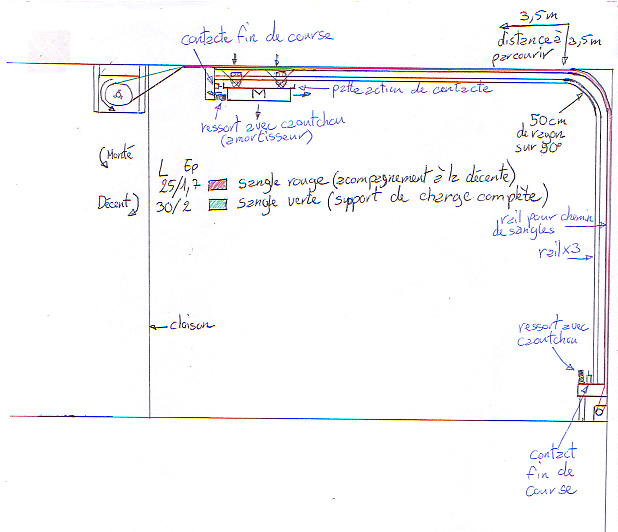 3,5m
contacte fin de course
distance à
parcourir
3,5m
patte action de contacte
ressort avec caoutchou
(amortisseur)
50cm
de rayon
sur 90°
M
Monté
L Ep
25/1,7 sangle rouge (acompagnement à la décente)
Décent
30/2 sangle verte (support de charge complète)
rail pour chemin
de sangles
rail x3
cloison
ressort avec
caoutchou
contact
fin de
course